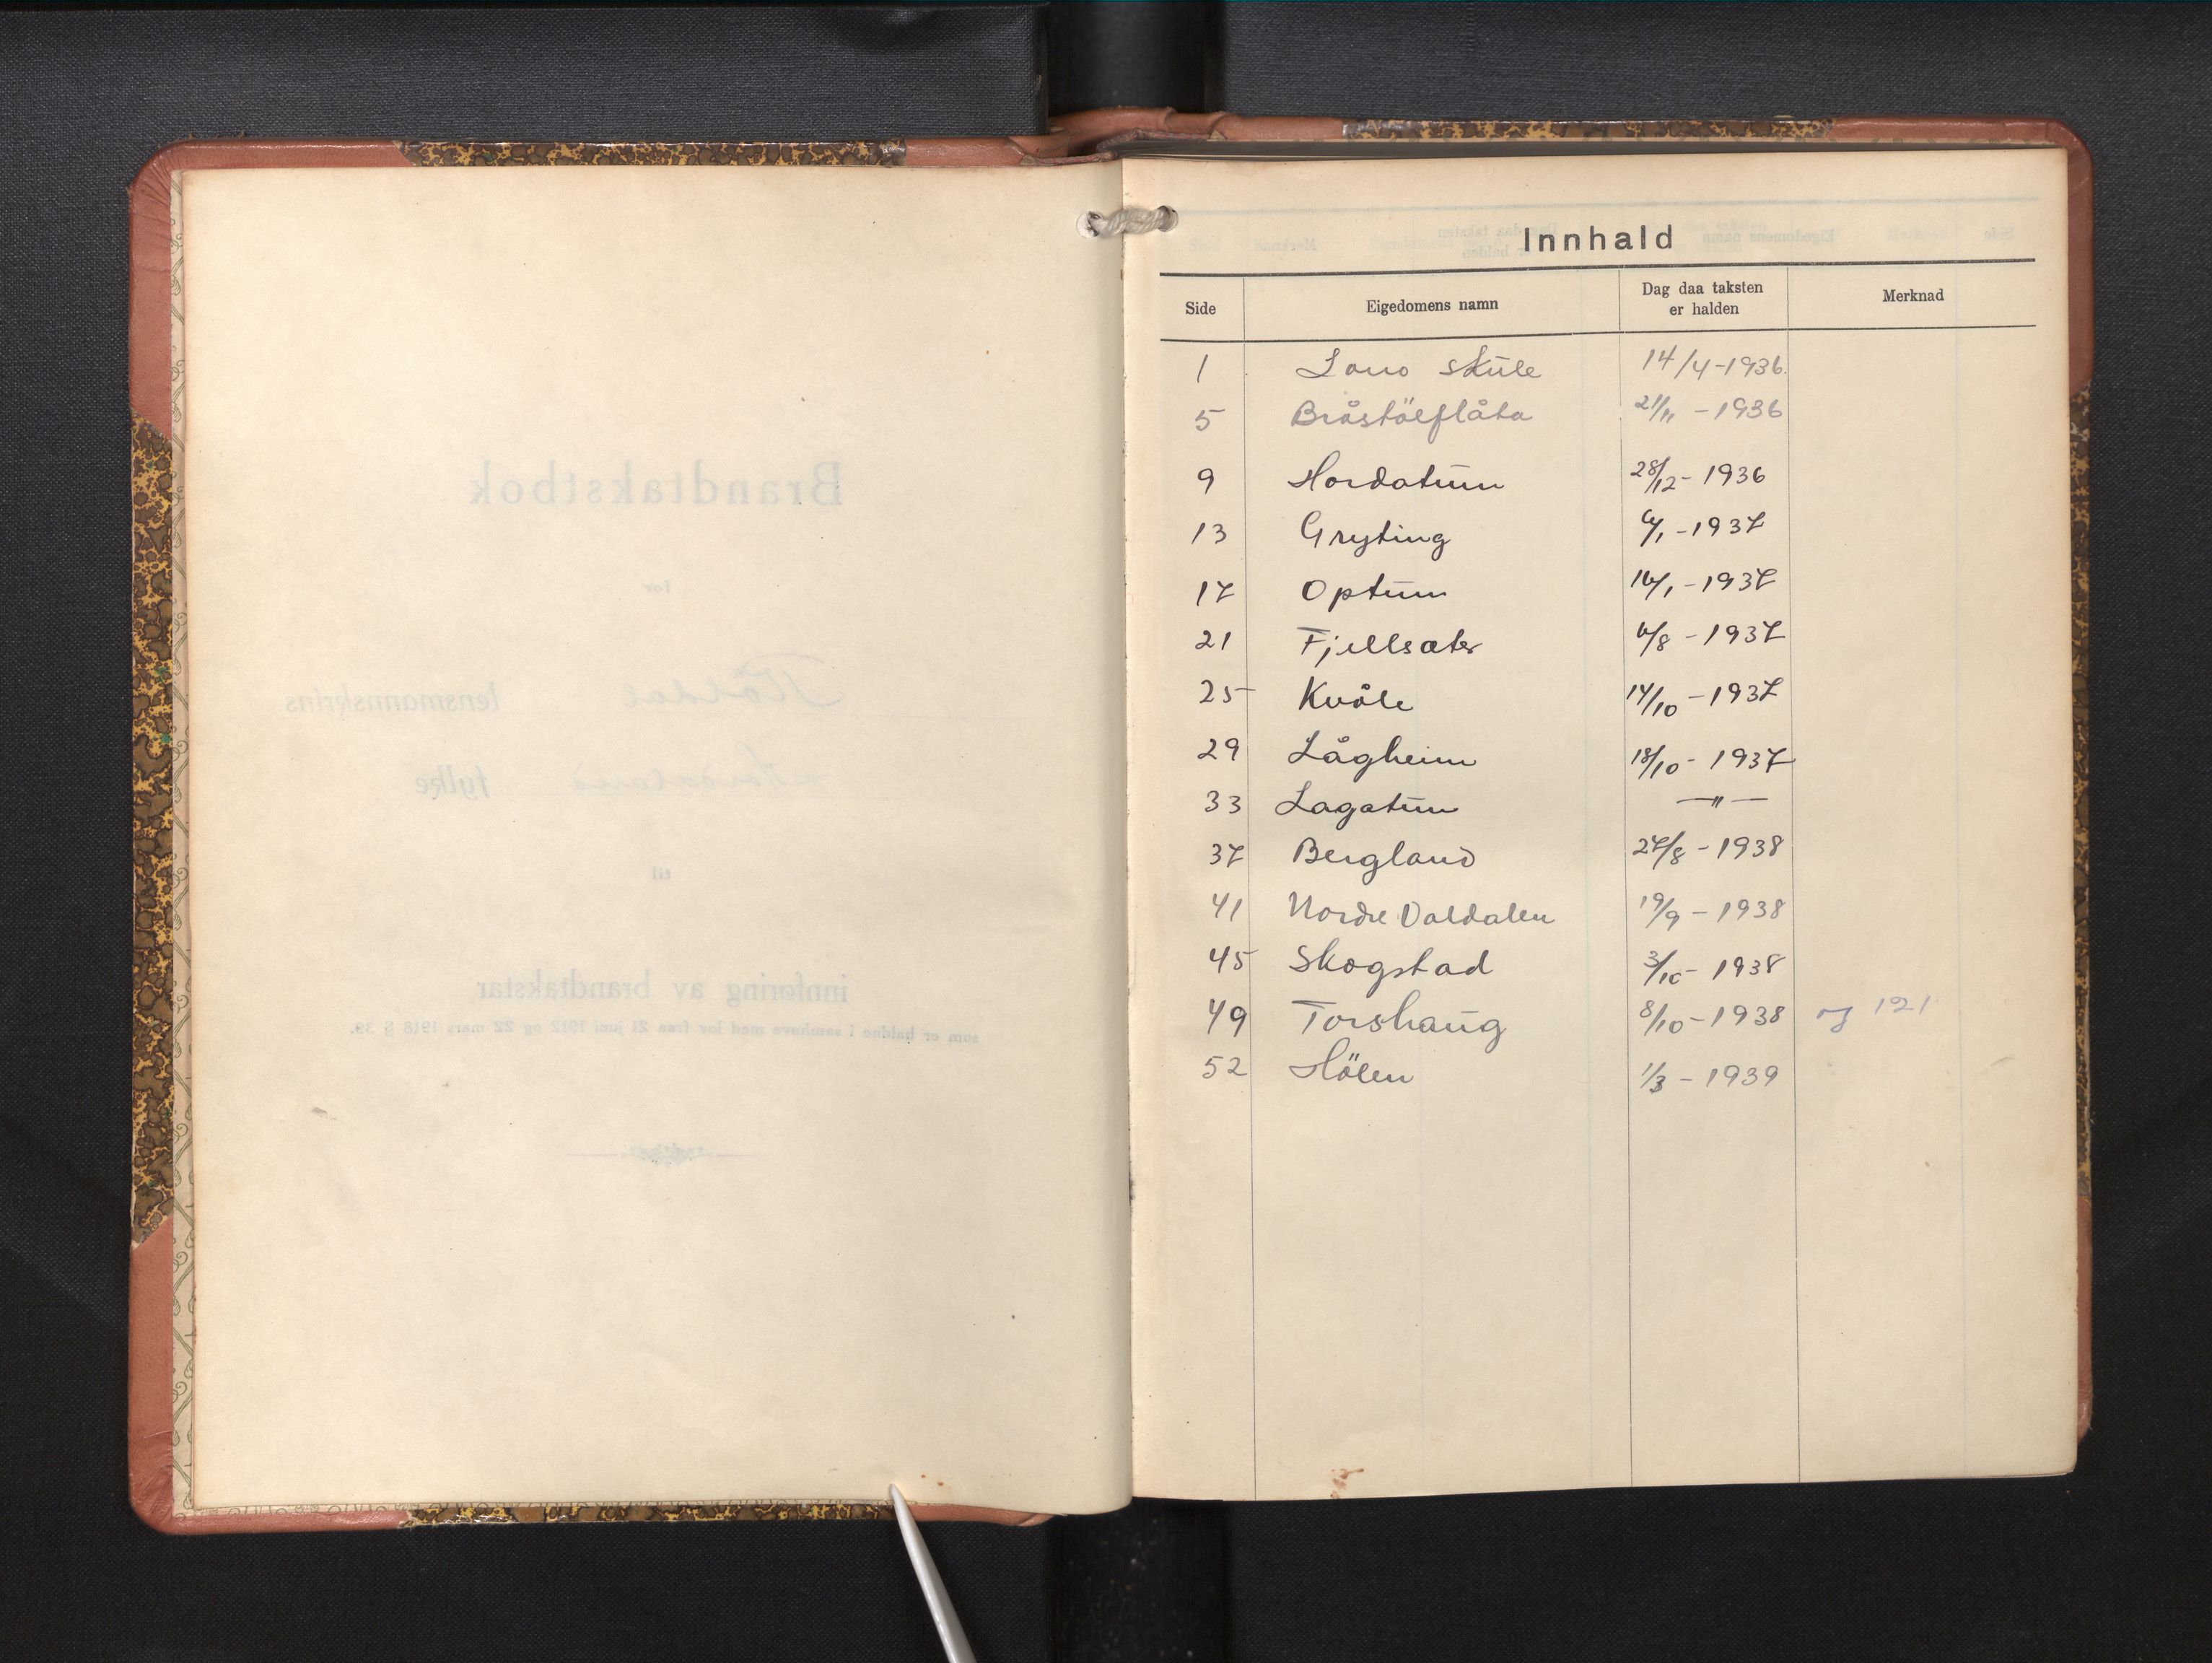 Innhald
Side Eigedomens namn Dag daa taksten er halden Merknad
1 Lono skŭle 14/4-1936.
5 Bråstölflåta 21/11 - 1936
9 Hordatŭn 28/12- 1936
13 Gryting 6/1 - 1937
17 Optŭn 16/1 - 1937
21 Fjellsæter 6/8 - 1937
25 Kvåle 14/10 - 1937
29 Lågheim 18/10 - 1937
33 Lagatŭn — " —
37 Bergland 27/8 - 1938
41 Nordre Valdalen 19/9 - 1938
45 Skogstad 3/10 - 1938
49 Torshaŭg 8/10 - 1938 og 121
52 Hölen 1/3 - 1939
Brandtakstbok
for
Röldal lensmannskrins
Hordaland fylke
til
innføring av brandtakstar
som er haldne i samhøve med lov fraa 21 juni 1912 og 22 mars 1918 § 39.